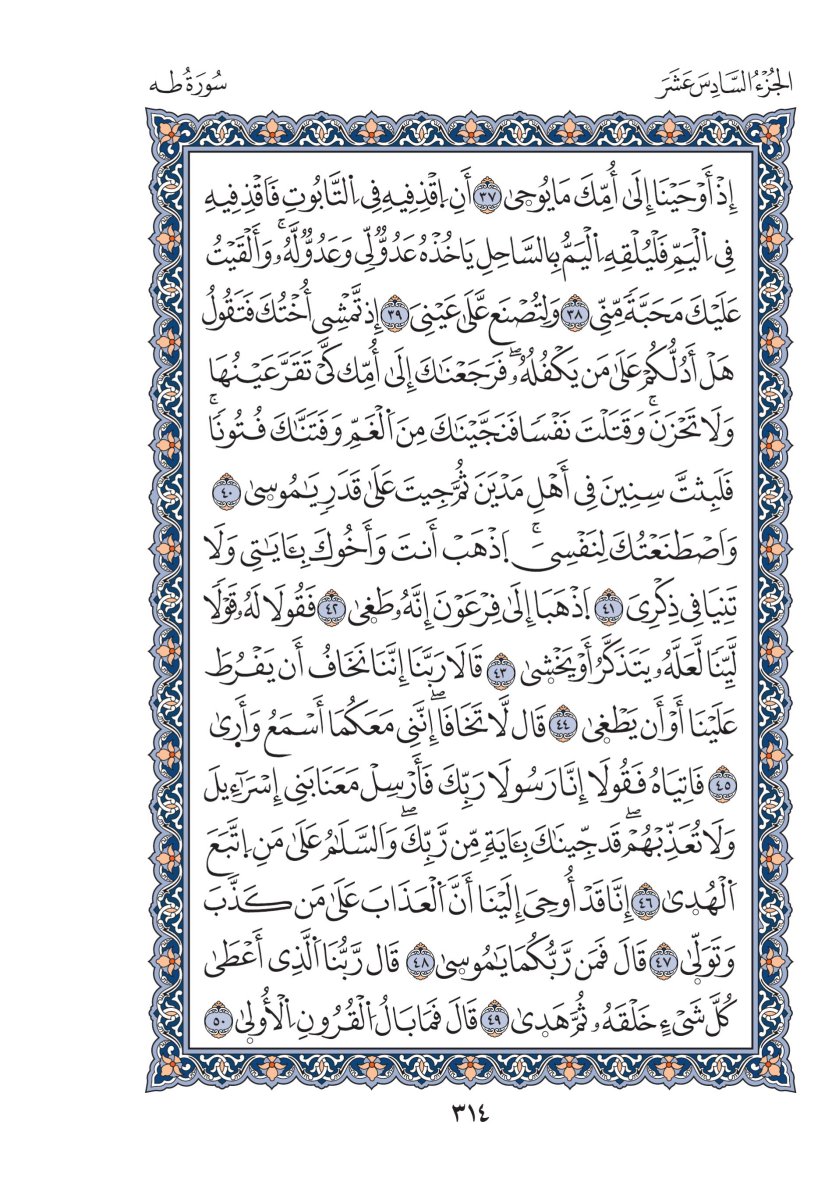 الجُزْءُ السَّادِسَ عَشَرَ
سُورَةُ طه
إِذْ أَوْحَيْنَا إِلَىٰ أُمِّكَ مَا يُوحِىٰ ٣٧ أَنِ اِقْذِفِيهِ فِي اِلتَّابُوتِ فَاقْذِفِيهِ
فِي اِلْيَمِّ فَلْيُلْقِهِ اِلْيَمُّ بِالسَّاحِلِ يَاخُذْهُ عَدُوٌّ لِّي وَعَدُوٌّ لَّهُۥۚ وَأَلْقَيْتُ
عَلَيْكَ مَحَبَّةً مِّنِّي ٣٨ وَلِتُصْنَع عَّلَىٰ عَيْنِيَ ٣٩ إِذ تَّمْشِي أُخْتُكَ فَتَقُولُ
هَلْ أَدُلُّكُمْ عَلَىٰ مَن يَكْفُلُهُۥۖ فَرَجَعْنَاكَ إِلَىٰ أُمِّك كَّيْ تَقَرَّ عَيْنُهَا
وَلَا تَحْزَنَۚ وَقَتَلْتَ نَفْسًا فَنَجَّيْنَاكَ مِنَ اَلْغَمِّ وَفَتَنَّاكَ فُتُونًاۚ
فَلَبِثتَّ سِنِينَ فِي أَهْلِ مَدْيَنَ ثُمَّ جِيتَ عَلَىٰ قَدَرٍ يَٰمُوسِىٰ ٤٠
وَاصْطَنَعْتُكَ لِنَفْسِيَۚ اَذْهَبْ أَنتَ وَأَخُوكَ بِـَٔايَٰتِي وَلَا
تَنِيَا فِي ذِكْرِيَ ٤١ اَذْهَبَا إِلَىٰ فِرْعَوْنَ إِنَّهُۥ طَغِىٰ ٤٢ فَقُولَا لَهُۥ قَوْلًا
لَّيِّنًا لَّعَلَّهُۥ يَتَذَكَّرُ أَوْ يَخْشِىٰ ٤٣ قَالَا رَبَّنَا إِنَّنَا نَخَافُ أَن يَفْرُطَ
عَلَيْنَا أَوْ أَن يَطْغِىٰ ٤٤ قَال لَّا تَخَافَاۖ إِنَّنِي مَعَكُمَا أَسْمَعُ وَأَرِىٰ
٤٥ فَاتِيَاهُ فَقُولَا إِنَّا رَسُولَا رَبِّكَ فَأَرْسِلْ مَعَنَا بَنِي إِسْرَآءِيلَ
وَلَا تُعَذِّبْهُمْۖ قَد جِّينَاكَ بِـَٔايَةٍ مِّن رَّبِّكَۖ وَاَلسَّلَٰمُ عَلَىٰ مَنِ اِتَّبَعَ
اَلْهُدِىٰ ٤٦ إِنَّا قَدْ أُوحِيَ إِلَيْنَا أَنَّ اَلْعَذَابَ عَلَىٰ مَن كَذَّبَ
وَتَوَلِّىٰ ٤٧ قَالَ فَمَن رَّبُّكُمَا يَٰمُوسِىٰ ٤٨ قَال رَّبُّنَا اَلَّذِي أَعْطَىٰ
كُلَّ شَيْءٍ خَلْقَهُۥ ثُمَّ هَدِىٰ ٤٩ قَالَ فَمَا بَالُ اُلْقُرُونِ اِلْأُولِىٰ ٥٠
٣١٤